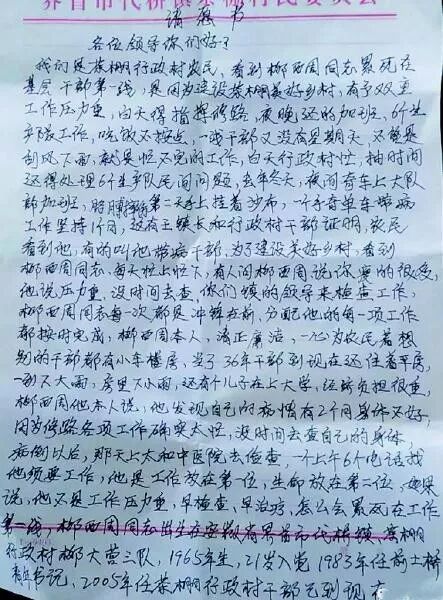 界首市代桥镇茶棚行政村民委员会
请愿书
各位领导你们好?
我们是茶棚行政村农民，看到柳西周同志累死在
基层干部第一线，是因为建设茶棚美好乡村，有多双重
工作压力重，白天得指挥修路，夜晚还的加班，6个生
产队工作，吃饭不按点，一线干部又没有星期天，不管是
刮风下雨，就是忙不完的工作，白天行政村忙，抽时间
还得处理6个生产队民间问题，去年冬天，夜间奇车上大队
部加班，胳膊 第二天手上挂着沙布，一个手奇单车带病
工作坚持1个月，还有王镇长和行政村干部证明，农民
看到他，有的叫他带病干部，为了建设美好乡村，看到
柳西周同志，每天忙上忙下，有人问柳西周说你累的很受，
他说压力重，没时间去查，你们镇的领导来检查工作，
柳西周同志每一次都是冲锋在前，分配他的每一项工作
都按时完成，柳西周本人，清正廉洁，一心为农民着想
别的干部都有小车楼房，当了36年干部到现在还住着平房，
一到下大雨，房里下小雨，还有个儿子在上大学，经济负担很重，
柳西周他本人说，他发现自己的病情有2个月身体不好，
因为修路各项工作确实太忙，没时间去查自己的身体，
病倒以后，那天上太和中医院去检查，一个上午6个电话找
他须要工作，他是工作放在第一位，生命放在第二位，如果
说，他不是工作压力重，早检查，早治疗，怎么会累死在工作
第一线，柳西周同志出生在安徽省界首市代桥镇，茶棚
行政村柳大营三队，1965年生，21岁入党 1983年任前士桥
青年书记，2005年任茶棚行政村干部已到现在